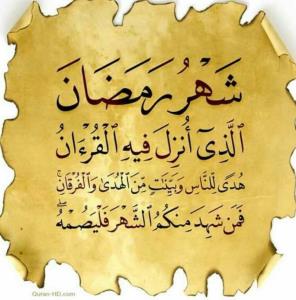 شَهْرُ رَمَضَانَ
الَّذِىٓ أُنزِلَ فِيهِ ٱلْقُرْءَانُ
هُدًى لِّلنَّاسِ وَبَيِّنَٰتٍ مِّنَ ٱلْهُدَىٰ وَٱلْفُرْقَانِ ۚ
فَمَن شَهِدَ مِنكُمُ ٱلشَّهْرَ فَلْيَصُمْهُ ۖ
Quran-HD.com